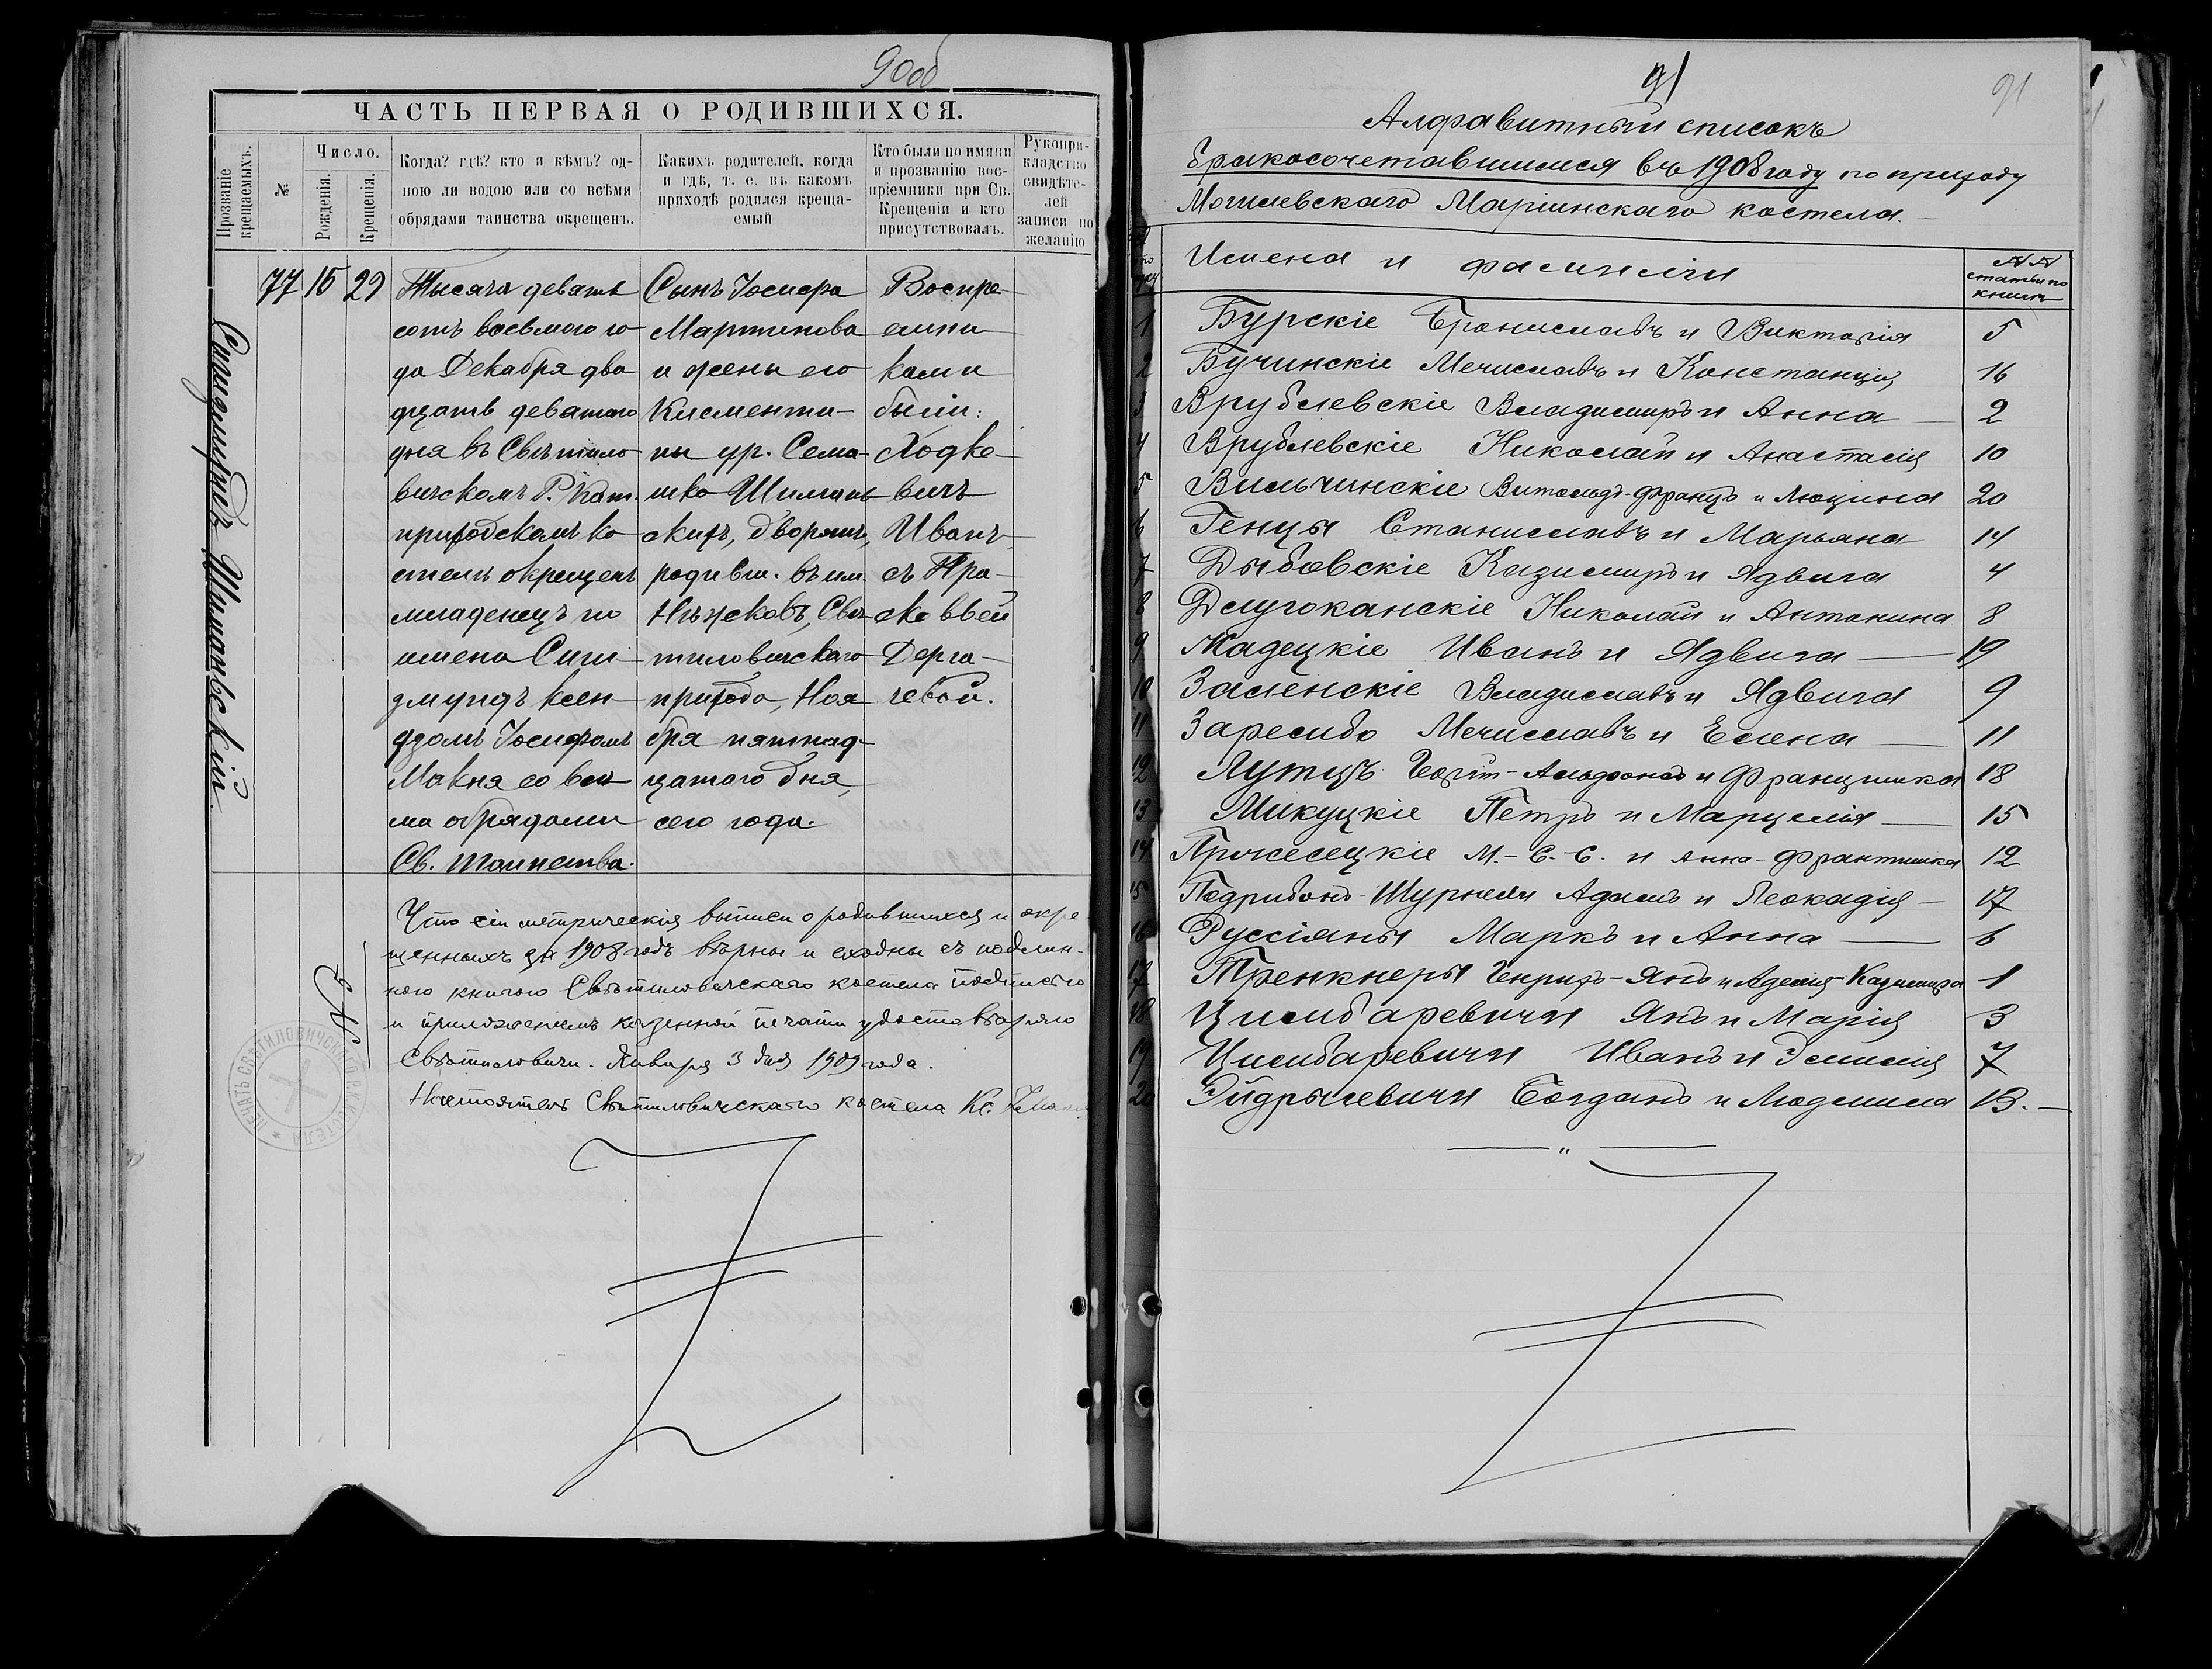 90об
ЧАСТЬ ПЕРВАЯ О РОДИВШИХСЯ.
Прозваніе крещаемыхъ.
№
Число.
Рожденія.
Крещенія.
Когда? гдѣ? кто и кѣмъ? од-
ною ли водою или со всѣми
обрядами таинства окрещенъ.
Какихъ родителей, когда
и гдѣ, т. е. въ какомъ
приходѣ родился креща-
емый
Кто были по имяни
и прозванію вос-
пріемники при Св.
Крещеніи и кто
присутствовалъ.
Рукопри-
кладство
свидѣте-
лей
записи по
желанію
Сигизмундъ Шимановскій
77 15 29
Тысяча девять
сотъ восьмого го-
да Декабря два-
дцать девятаго
дня въ Свѣтило-
вичскомъ Р. Кат.
приходскомъ ко-
стелѣ окрещенъ
младенецъ по
имени Сиги-
змундъ ксен-
дзомъ Іосифомъ
со всѣ-
ми обрядами
Св. таинства.
Сынъ Іосифа
Мартинова
и жены его
Клементи-
ны ур. Сема-
шко Шиманов-
скихъ, дворянъ,
родивш. въ им.
Свѣ-
тиловичскаго
прихода, Ноя-
бря пятнад-
цатаго дня,
сего года.
Воспре-
емни-
ками
были:
Ходке-
вичъ
Иванъ
съ Пра-
сковьей
Дерга-
чевой.
Что сіи метрическія выписи о родившихся и окре-
щенныхъ за 1908 годъ вѣрны и сходны съ подлин-
ною книгою Свѣтиловичскаго костела подписью
и приложеніемъ казенной печати удостовѣряю
Свѣтиловичи. Января 3 дня 1909 года.
Настоятель Свѣтиловичскаго костела Кс.
№ 2
ПЕЧАТЬ СВѢТИЛОВИЧСКАГО КОСТЕЛА
91
91
Алфавитный списокъ
бракосочетавшимся въ 1908 году по приходу
Могилевскаго Маріинскаго костела.
Имена и фамиліи
№№ статьи по книгѣ
1 Бурскіе Брониславъ и Викторія 5
2 Бучинскіе Мечиславъ и Констанція 16
3 Врублевскіе Владимиръ и Анна 2
4 Врублевскіе Николай и Анастасія 10
5 Вильчинскіе Витольдъ-Францъ и Люцина 20
6 Генцы Станиславъ и Марьяна 14
7 Дыбовскіе Казимиръ и Ядвига 4
8 Длугоканскіе Николай и Антонина 8
9 Жадецкіе Иванъ и Ядвига 19
10 Заленскіе Владиславъ и Ядвига 9
11 Зарембо Мечиславъ и Елена 11
12 Лутцъ Альфонсъ и Францишка 18
13 Микуцкіе Петръ и Марцелія 15
14 М.-С.-С. и Анна-Франтишка 12
15 Адамъ и Леокадія 17
16 Руссіяны Маркъ и Анна 6
17 Тренкнеры Генрихъ-Янъ и Аделія-Казимира 1
18 Цимбаревичи Янъ и Марія 3
19 Цимбаревичи Иванъ и Эмилія 7
20 Эйдрыгевичи Богданъ и Людмила 13.